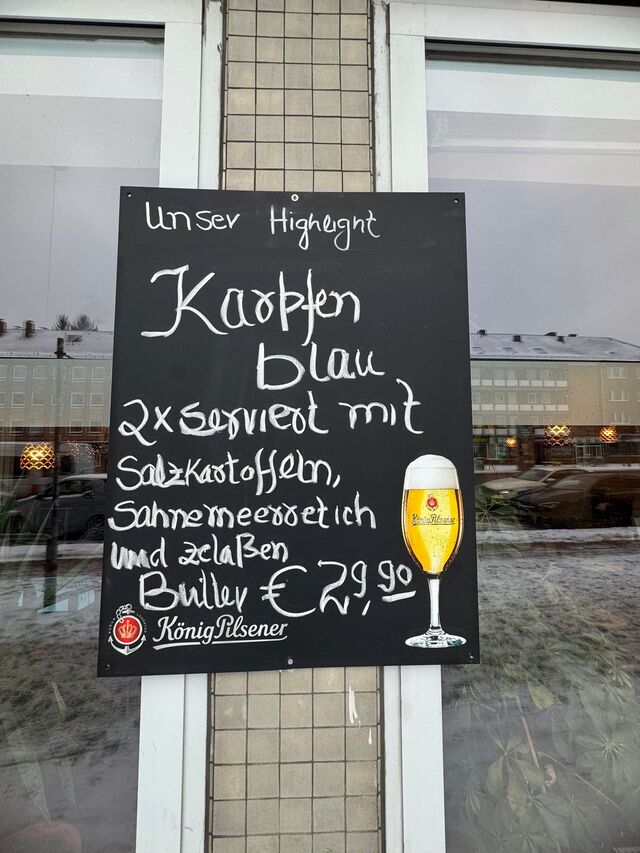 Unser Highlight
Karpfen
blau
2x serviert mit
Salzkartoffeln,
Sahnemeerrettich
und zelaßen
Butter €29,90
König Pilsener
König Pilsener